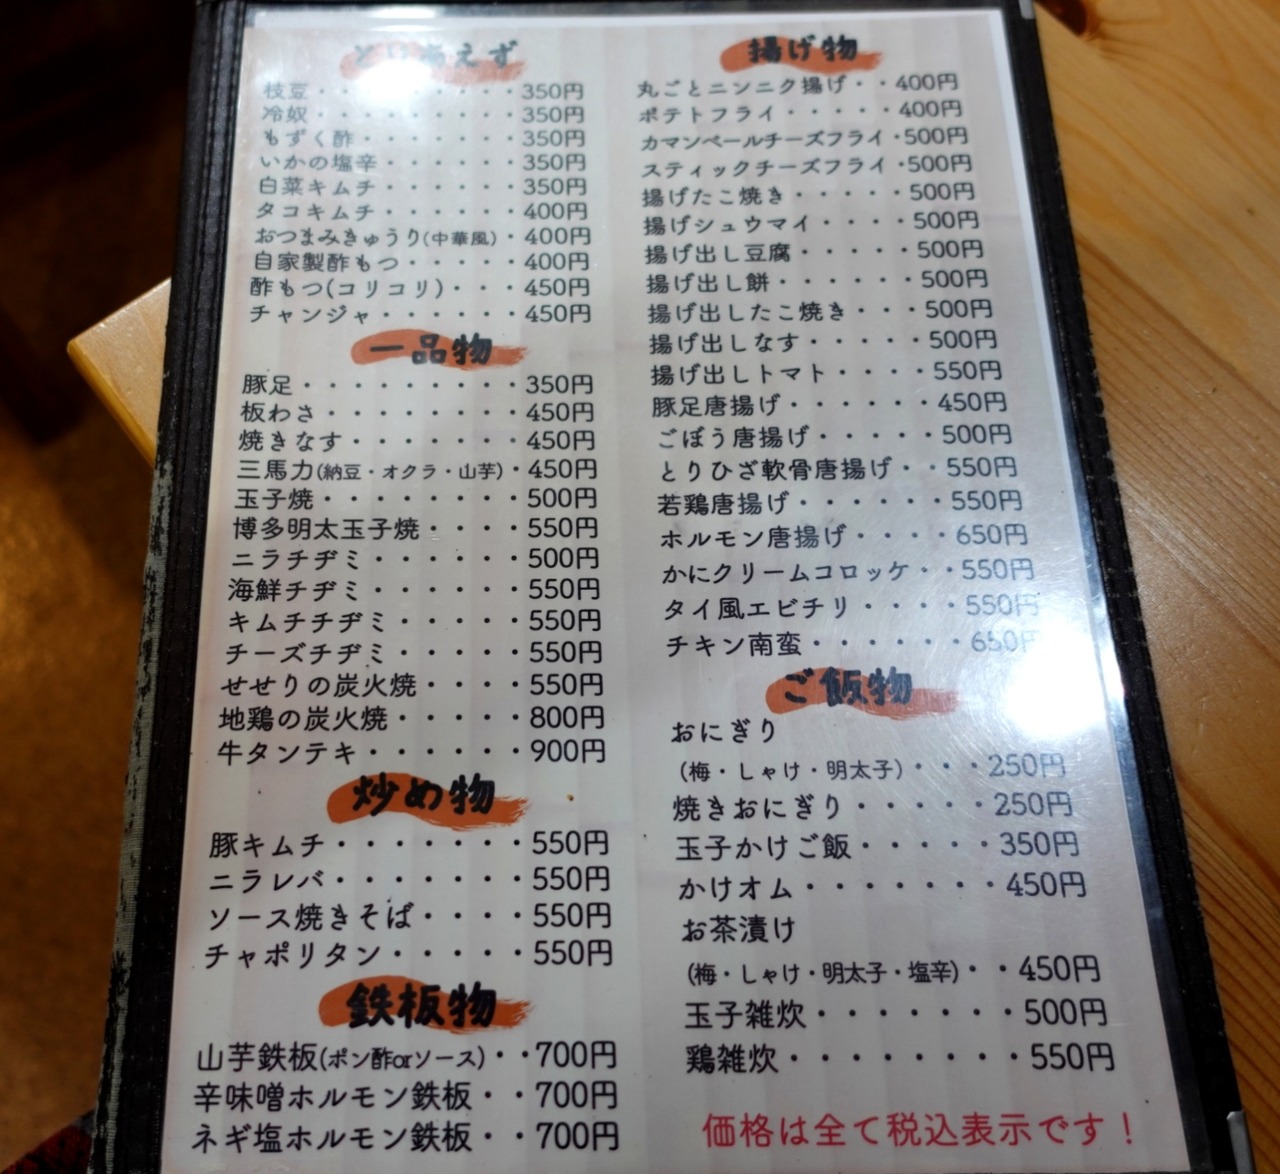 とりあえず
枝豆・・・・・・・・・350円
冷奴・・・・・・・・・350円
もずく酢・・・・・・・350円
いかの塩辛・・・・・・350円
白菜キムチ・・・・・・350円
タコキムチ・・・・・・400円
おつまみきゅうり(中華風)・400円
自家製酢もつ・・・・・400円
酢もつ(コリコリ)・・・450円
チャンジャ・・・・・・450円
一品物
豚足・・・・・・・・・350円
板わさ・・・・・・・・450円
焼きなす・・・・・・・450円
三馬力(納豆・オクラ・山芋)・450円
玉子焼・・・・・・・・500円
博多明太玉子焼・・・・550円
ニラチヂミ・・・・・・500円
海鮮チヂミ・・・・・・550円
キムチチヂミ・・・・・550円
チーズチヂミ・・・・・550円
せせりの炭火焼・・・・550円
地鶏の炭火焼・・・・・800円
牛タンテキ・・・・・・900円
炒め物
豚キムチ・・・・・・・550円
ニラレバ・・・・・・・550円
ソース焼きそば・・・・550円
チャポリタン・・・・・550円
鉄板物
山芋鉄板(ポン酢orソース)・・700円
辛味噌ホルモン鉄板・・700円
ネギ塩ホルモン鉄板・・700円
揚げ物
丸ごとニンニク揚げ・・400円
ポテトフライ・・・・・400円
カマンベールチーズフライ・500円
スティックチーズフライ・500円
揚げたこ焼き・・・・・500円
揚げシュウマイ・・・・500円
揚げ出し豆腐・・・・・500円
揚げ出し餅・・・・・・500円
揚げ出したこ焼き・・・500円
揚げ出しなす・・・・・500円
揚げ出しトマト・・・・550円
豚足唐揚げ・・・・・・450円
ごぼう唐揚げ・・・・・500円
とりひざ軟骨唐揚げ・・550円
若鶏唐揚げ・・・・・・550円
ホルモン唐揚げ・・・・650円
かにクリームコロッケ・・550円
タイ風エビチリ・・・・550円
チキン南蛮・・・・・・650円
ご飯物
おにぎり
(梅・しゃけ・明太子)・・・250円
焼きおにぎり・・・・・250円
玉子かけご飯・・・・・350円
かけオム・・・・・・・450円
お茶漬け
(梅・しゃけ・明太子・塩辛)・・450円
玉子雑炊・・・・・・・500円
鶏雑炊・・・・・・・・550円
価格は全て税込表示です！